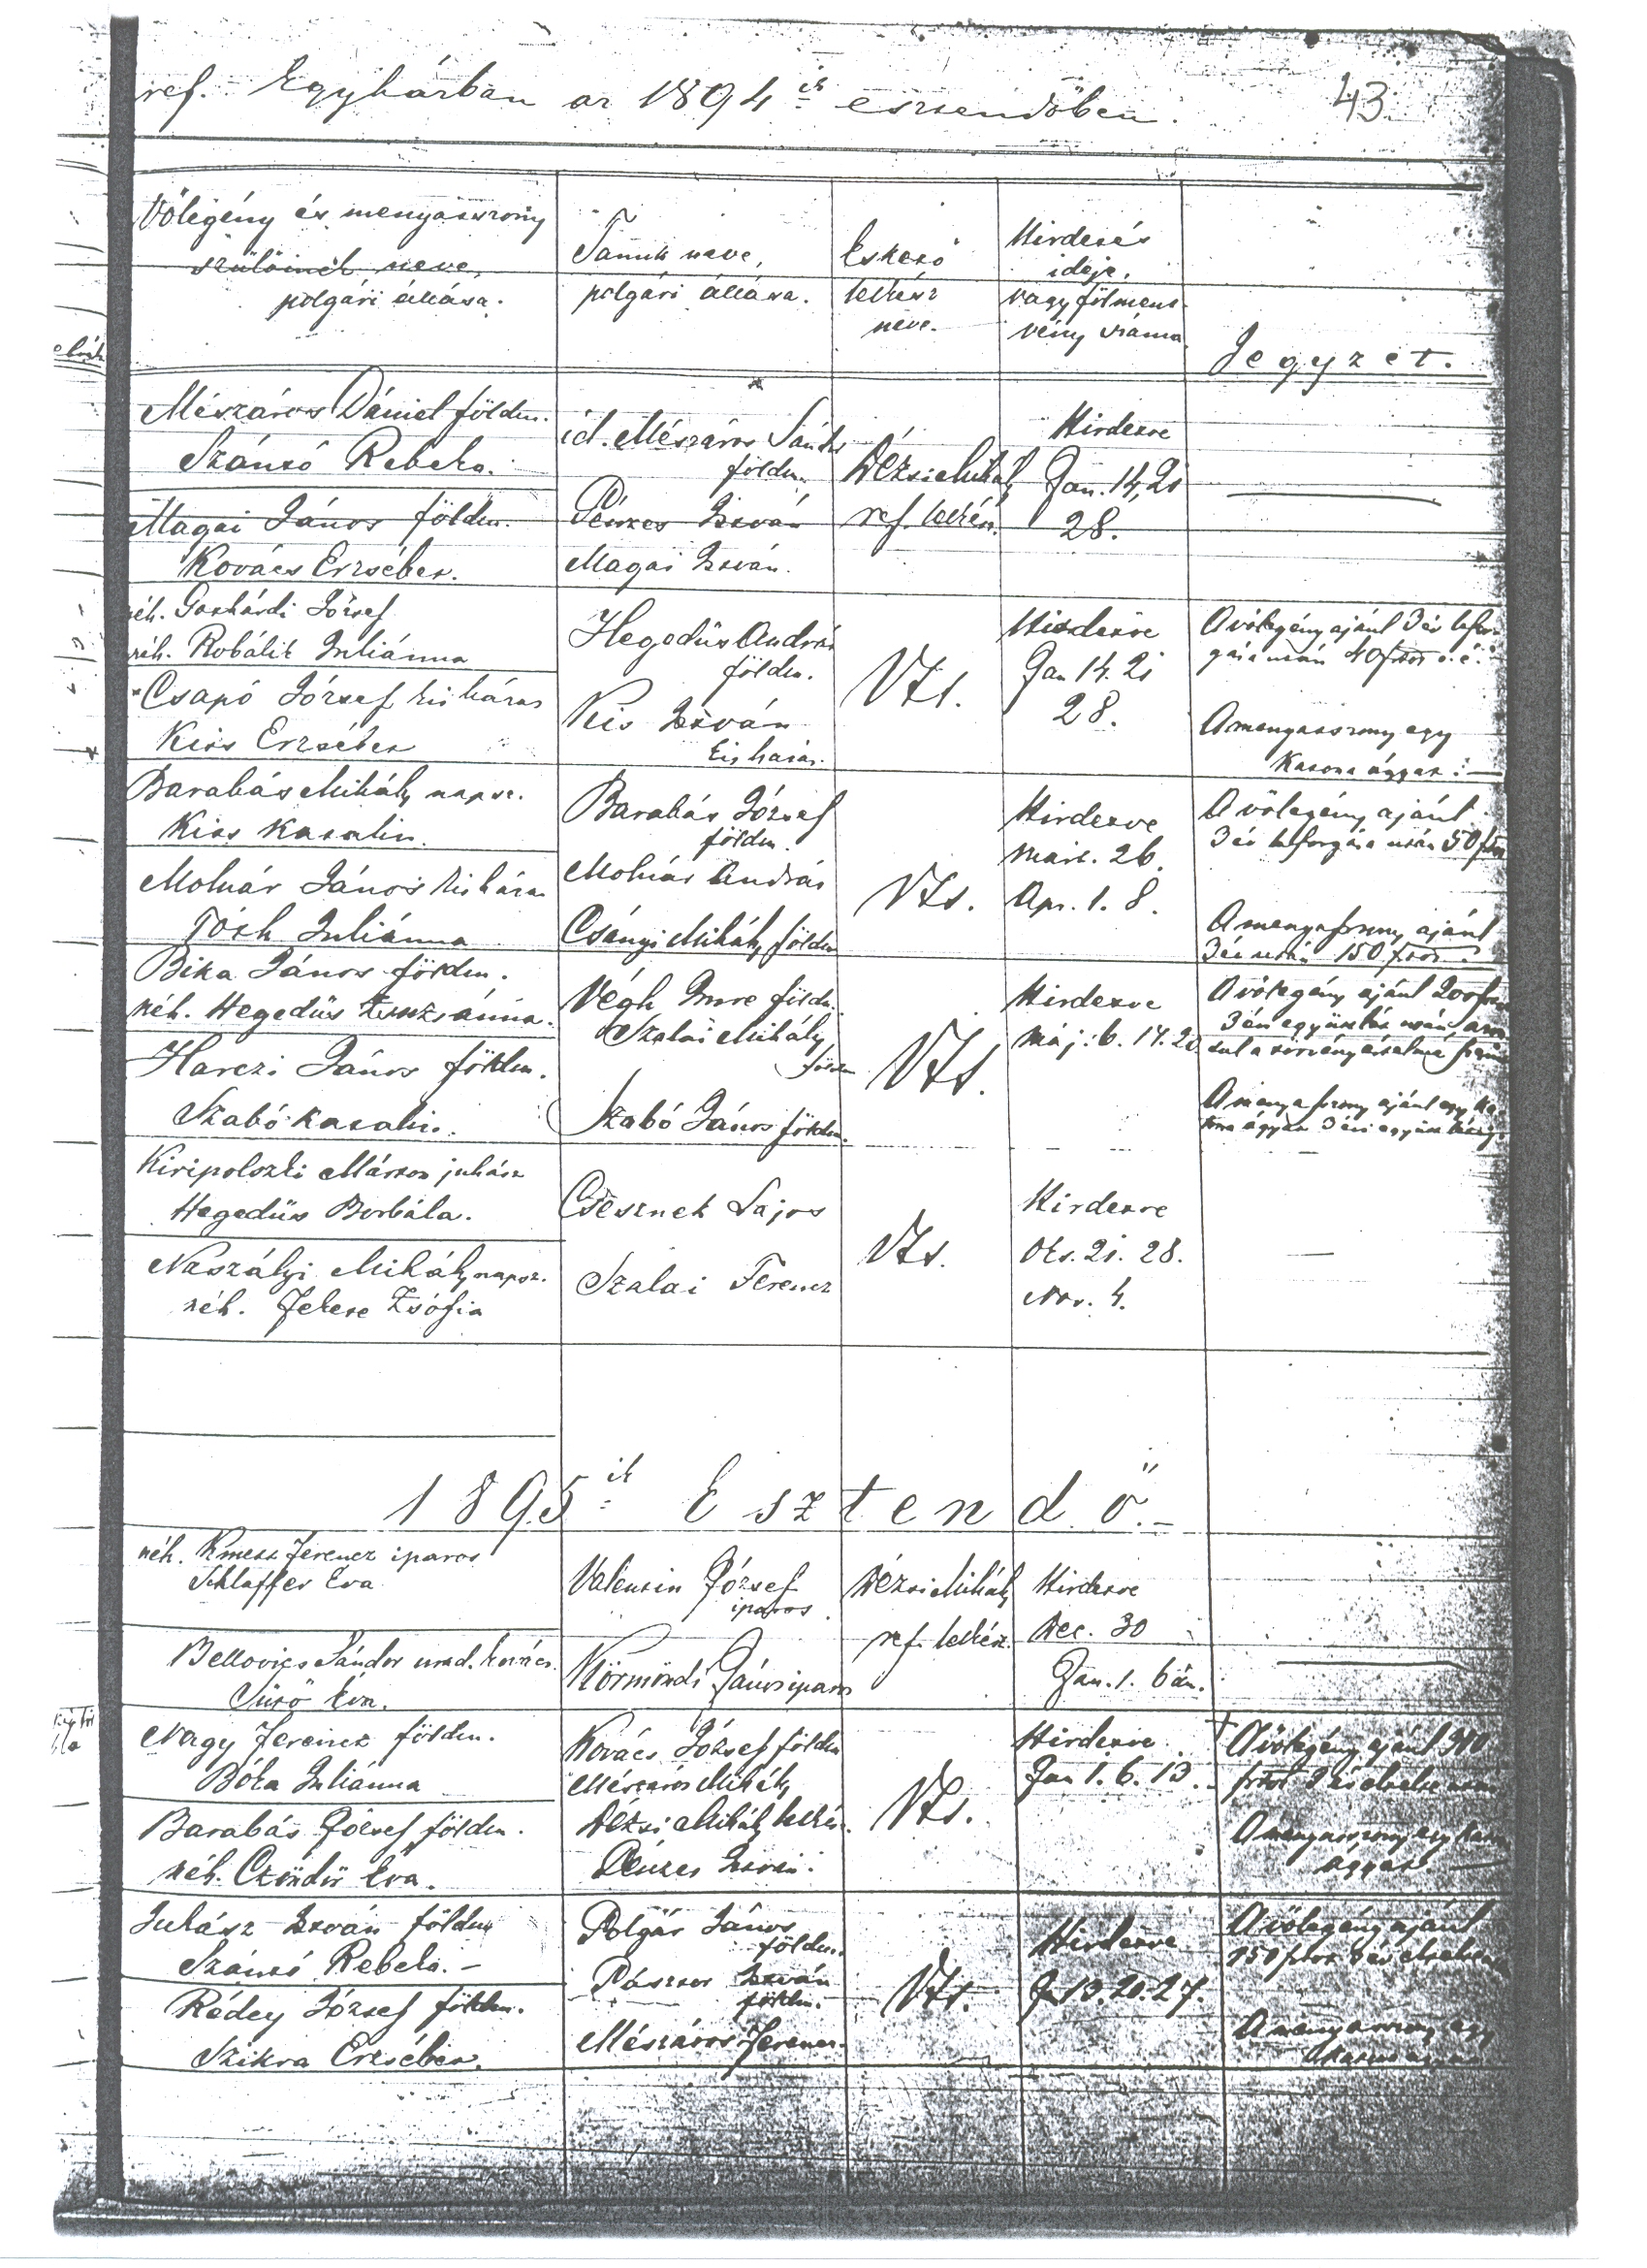 ref. Egyházban az 1894 ik esztendőben. 43
Vőlegény és menyasszony
szülőinek neve,
polgári állása.
Tanuk neve,
polgári állása.
Eskető
lelkész
neve.
Hirdetés
ideje,
vagy fölment-
vény száma.
Jegyzet.
Mészáros Dániel földm.
Szántó Rebeka.
Magai János földm.
Kovács Erzsébet.
id. Mészáros Sándor
földm.
Pénzes István
Magai István.
Dézsi Mihály
ref. lelkész.
Hirdetve
Jan. 14, 21
28.
néh. Gothárdi József
néh. Robálik Juliánna
Csapó József kisházas
Kiss Erzsébet
Hegedüs András
földm.
Kis István
kisházas.
Hirdetve
Jan 14. 21
28.
A vőlegény ajánl 3 év lefor-
gása után 40 frtot
A menyasszony egy
katona ágyat.
Barabás Mihály napsz.
Kiss Katalin.
Molnár János kisháza
Tóth Juliánna
Barabás József
földm.
Molnár András
Csányi Mihály földm
Hirdetve
márc. 26.
Apr. 1. 8.
A vőlegény ajánl
3 év leforgása után 50 frt
A menyasszony ajánl
3 év után 150 frtot
Bika János földm.
néh. Hegedüs Zsuzsánna.
Harczi János földm.
Szabó Katalin.
Végh Imre földm.
Szalai Mihály
földm
Szabó János földm.
Hirdetve
máj. 6. 14. 20.
A vőlegény ajánl 200 frt
3 évi együttlét után
A menyasszony ajánl egy ka-
tona ágyat 3 évi együtt
Kiripolszki Márton juhász
Hegedüs Borbála.
Naszályi Mihály napsz.
néh. Fekete Zsófia
Csesznek Lajos
Szalai Ferencz
Hirdetve
Okt. 21. 28.
Nov. 4.
1895 ik Esztendő.
néh. Kmett Ferencz iparos
Schlaffer Éva
Bellovics Sándor urad. kovács.
Sütő Éva.
Valentin József
iparos
Körmöndi János iparos
Dézsi Mihály
ref. lelkész.
Hirdetve
Dec. 30
Jan. 1. 6 án.
Nagy Ferencz földm.
Bóka Juliánna
Barabás József földm.
néh. Czöndör Éva.
Kovács József földm
Mészáros Mihály
Dézsi Mihály lelkész.
Pénzes István.
Hirdetve
Jan 1. 6. 13.
A vőlegény ajánl
frtot 3 év
A menyasszony egy katona
ágyat.
Juhász István földm
Szántó Rebeka.
Rédey József földm.
Szikra Erzsébet.
Polgár János
földm.
Pásztor István
földm.
Mészáros Ferencz.
Hirdetve
Jan 13. 20. 27.
A vőlegény ajánl
150 frtot 3 év
A menyasszony egy